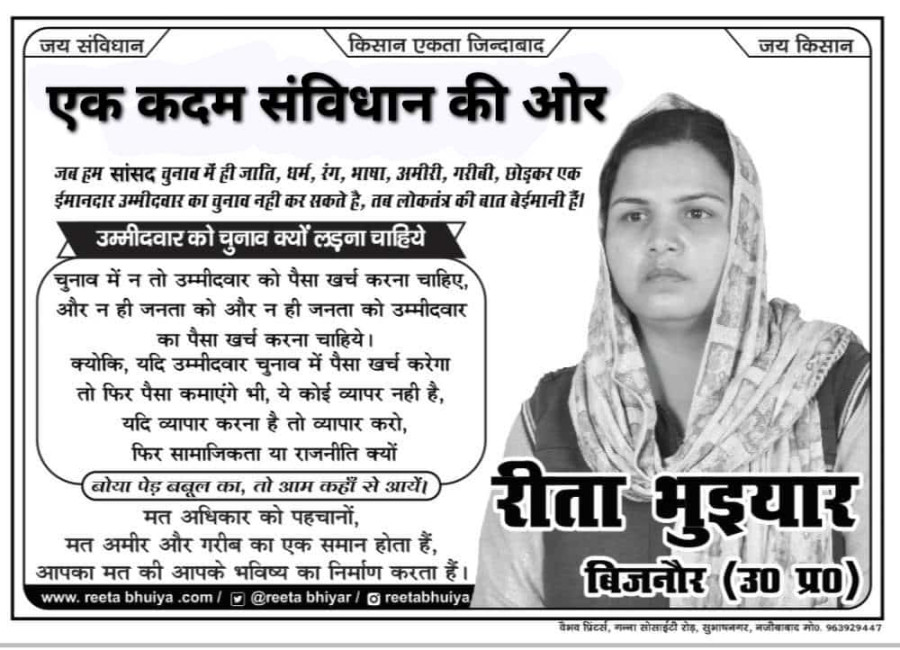 जय संविधान
किसान एकता जिन्दाबाद
जय किसान
एक कदम संविधान की ओर
जब हम सांसद चुनाव में ही जाति, धर्म, रंग, भाषा, अमीरी, गरीबी, छोड़कर एक
ईमानदार उम्मीदवार का चुनाव नही कर सकते है, तब लोकतंत्र की बात बेईमानी हैं।
उम्मीदवार को चुनाव क्यों लड़ना चाहिये
चुनाव में न तो उम्मीदवार को पैसा खर्च करना चाहिए,
और न ही जनता को और न ही जनता को उम्मीदवार
का पैसा खर्च करना चाहिये।
क्योकि, यदि उम्मीदवार चुनाव में पैसा खर्च करेगा
तो फिर पैसा कमाएंगे भी, ये कोई व्यापर नही है,
यदि व्यापार करना है तो व्यापार करो,
फिर सामाजिकता या राजनीति क्यों
बोया पेड़ बबूल का, तो आम कहाँ से आयें।
मत अधिकार को पहचानों,
मत अमीर और गरीब का एक समान होता हैं,
आपका मत की आपके भविष्य का निर्माण करता हैं।
रीता भुइयार
बिजनौर (उ0 प्र0)
www. reeta bhuiya .com / @reeta bhiyar / reetabhuiya
वैभव प्रिंटर्स, गन्ना सोसाईटी रोड़, सुभाषनगर, नजीबाबाद मो0. 963929447